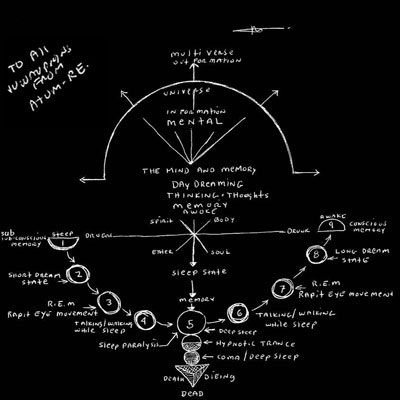 TO All
FROM
ATUM-RE.
multi verse
out formation
UNIVERSE
IN FORMATION
MENTAL
THE MIND AND MEMORY
DAY DREAMING
THINKING · THOUGHTS
MEMORY
AWOKE
SPIRIT
BODY
sub
SUB CONSCIOUS
MEMORY
SLEEP
1
DRUNK
AWAKE
9
CONSCIOUS
MEMORY
ETHER
SOUL
SLEEP STATE
8
LONG DREAM
STATE
SHORT DREAM
STATE
2
MEMORY
7
R.E.M
RAPIT EYE MOVEMENT
R.E.M
RAPIT EYE MOVEMENT
3
TALKING/WALKING
WHILE SLEEP
4
5
6
TALKING/WALKING
WHILE SLEEP
SLEEP PARALYSIS
DEEP SLEEP
HYPNOTIC TRANCE
COMA/DEEP SLEEP
DEATH
DIEING
DEAD